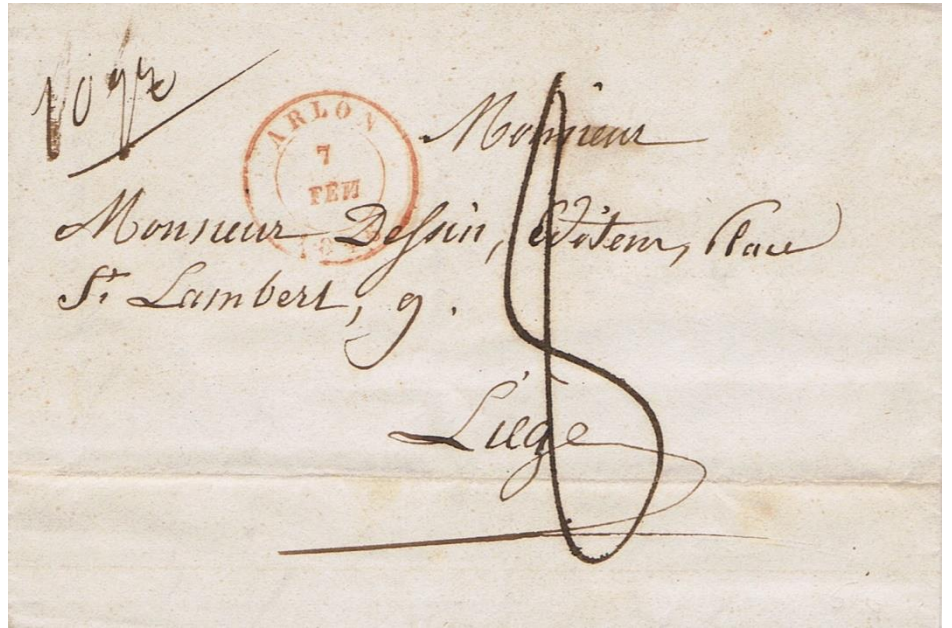 10 gr
ARLON
7
FEV
Monsieur
Monsieur Dessain, Editeur, Place
St. Lambert, 9.
Liège
8